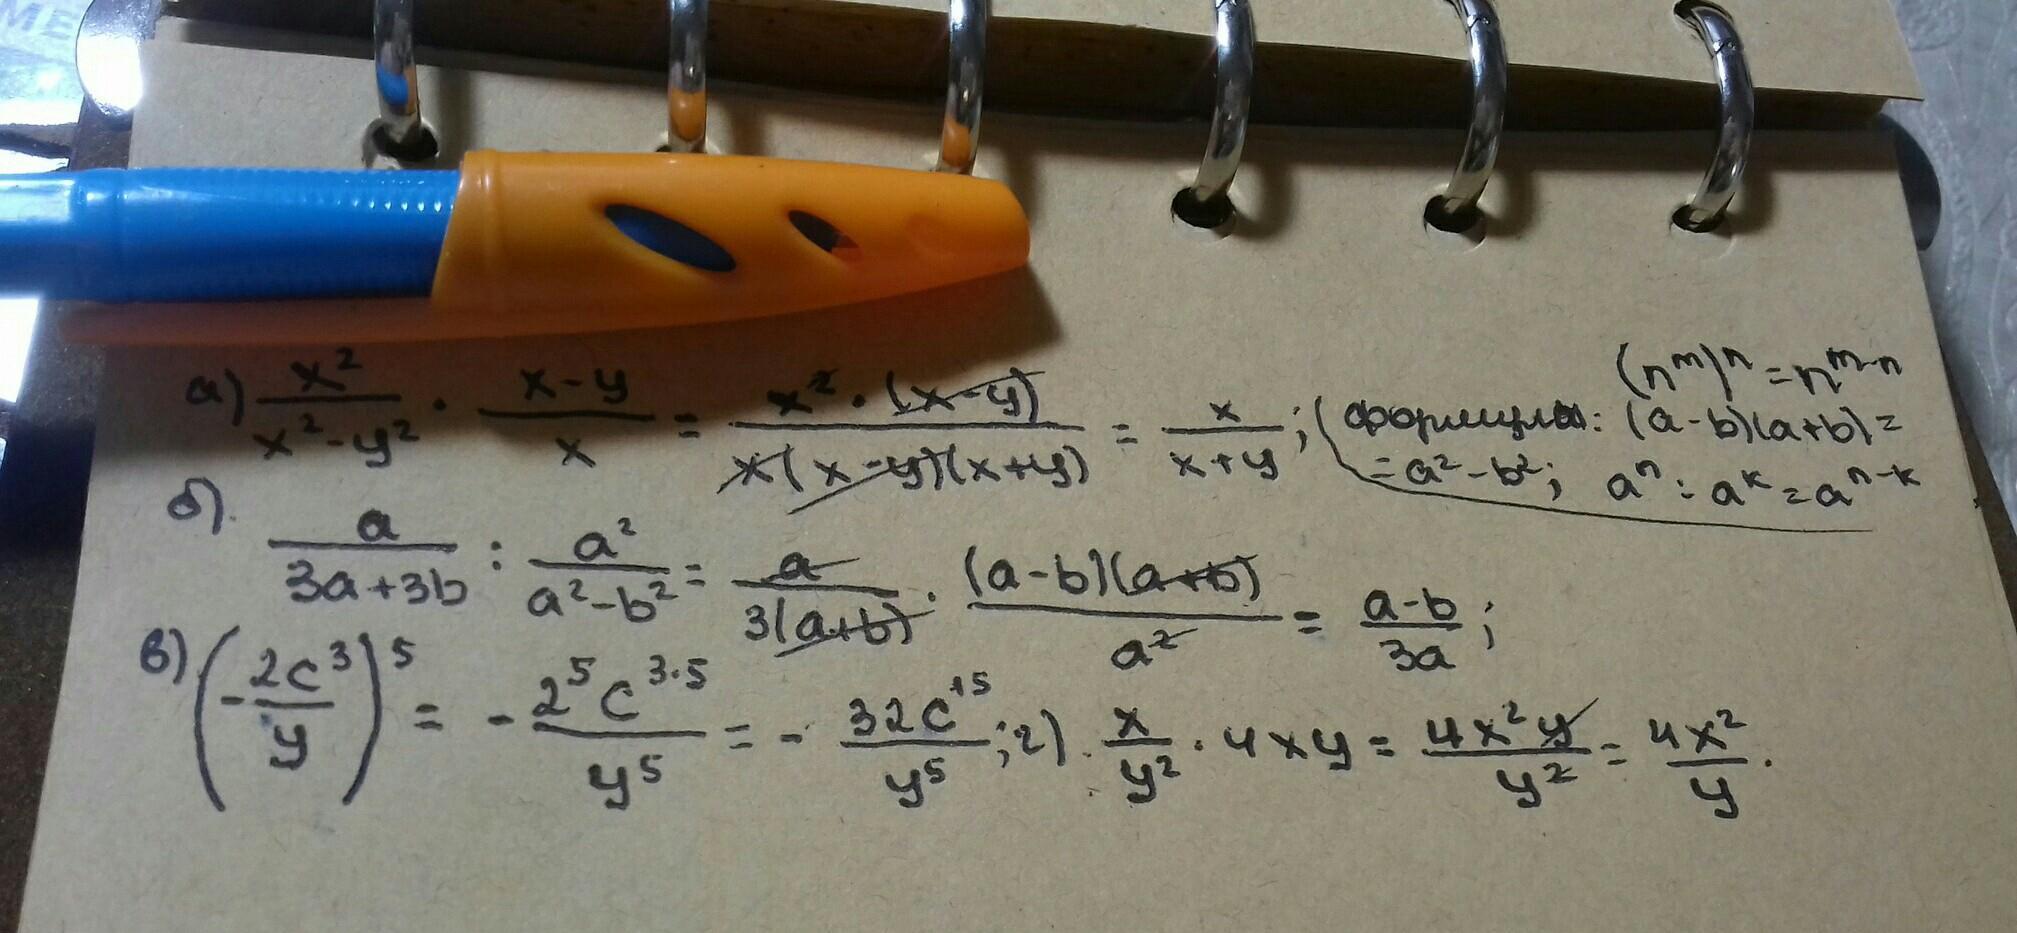 (n^m)^n = n^{m·n}
а) x²/(x²-y²) · (x-y)/x = x²·(x-y)/(x(x-y)(x+y)) = x/(x+y); (формулы: (a-b)(a+b) =
= a²-b²; a^n : a^k = a^{n-k}
б). a/(3a+3b) : a²/(a²-b²) = a/(3(a+b)) · (a-b)(a+b)/a² = (a-b)/(3a);
в) (-2c³/y)^5 = - 2^5c^{3·5}/y^5 = - 32c^{15}/y^5; г). x/y² · 4xy = 4x²y/y² = 4x²/y.